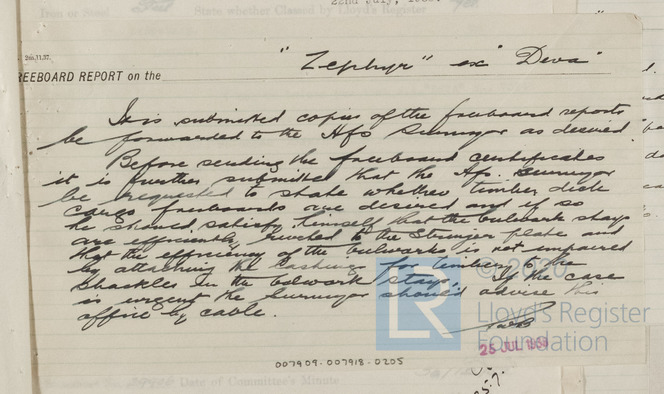 22nd July, 19
Iron or Steel State whether Classed by Lloyd's Register
2m,11,37.
REEBOARD REPORT on the "Zephyr" ex "Deva"
It is submitted copies of the freeboard reports
be forwarded to the Afo Surveyor as desired
Before sending the freeboard certificates
it is further submitted that the Afo. Surveyor
be requested to state whether timber deck
cargo freeboards are desired and if so
he should satisfy himself that the bulwark stays
are efficiently riveted to the stringer plate and
that the efficiency of the bulwarks is not impaired
by attaching the lashings for timber to the
shackles in the bulwark stays. If the case
is urgent the Surveyor should advise this
office by cable.
© 2020
LR
Lloyd's Register
Foundation
25 JUL 19
007909-007918-0205
Date of Committee's Minute